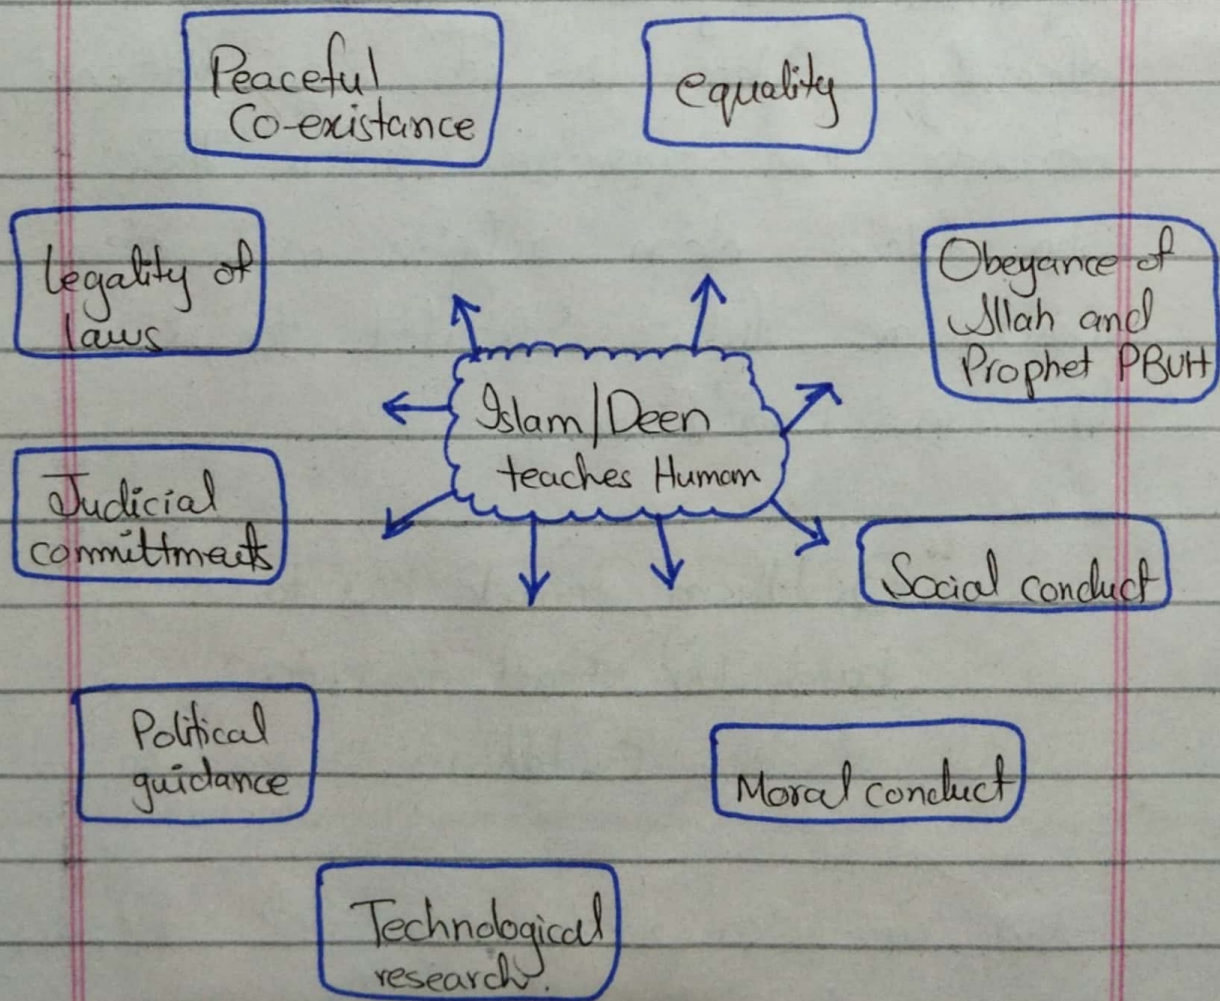 Peaceful
Co-existance
equality
legality of
laws
Obeyance of
Allah and
Prophet PBUH
Islam/Deen
teaches Human
Judicial
committments
Social conduct
Political
guidance
Moral conduct
Technological
research.